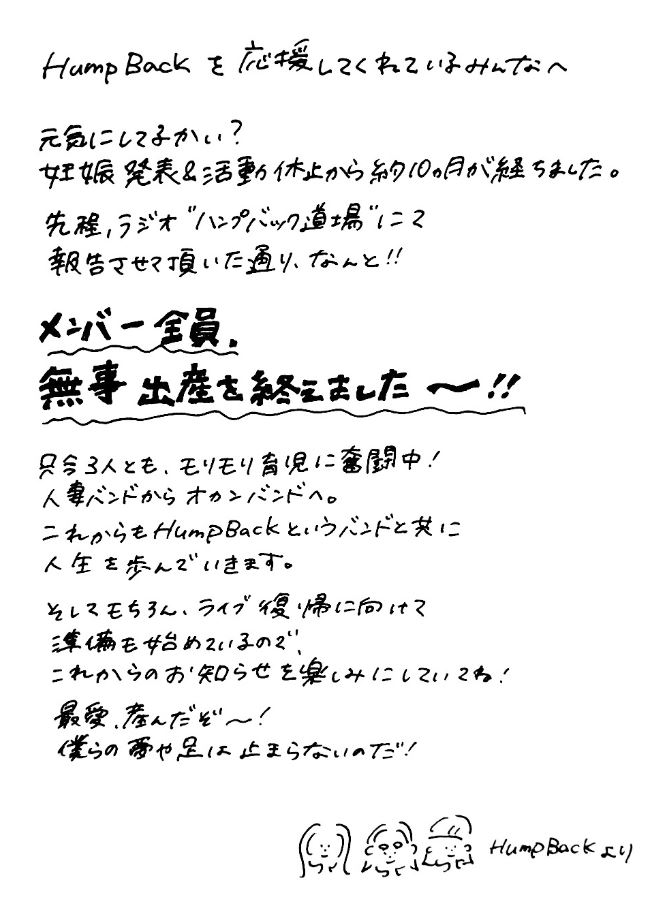 Hump Back を応援してくれているみんなへ
元気にしてるかい？
妊娠発表&活動休止から約10ヵ月が経ちました。
先程、ラジオ"ハンプバック道場"にて
報告させて頂いた通り、なんと!!
メンバー全員、
無事出産を終えました〜!!
只今3人とも、モリモリ育児に奮闘中!
人妻バンドからオカンバンドへ。
これからもHump Backというバンドと共に
人生を歩んでいきます。
そしてもちろん、ライブ復帰に向けて
準備も始めているので、
これからのお知らせを楽しみにしていてね!
最愛、産んだぞ〜!
僕らの夢や足は止まらないのだ!
Hump Backより